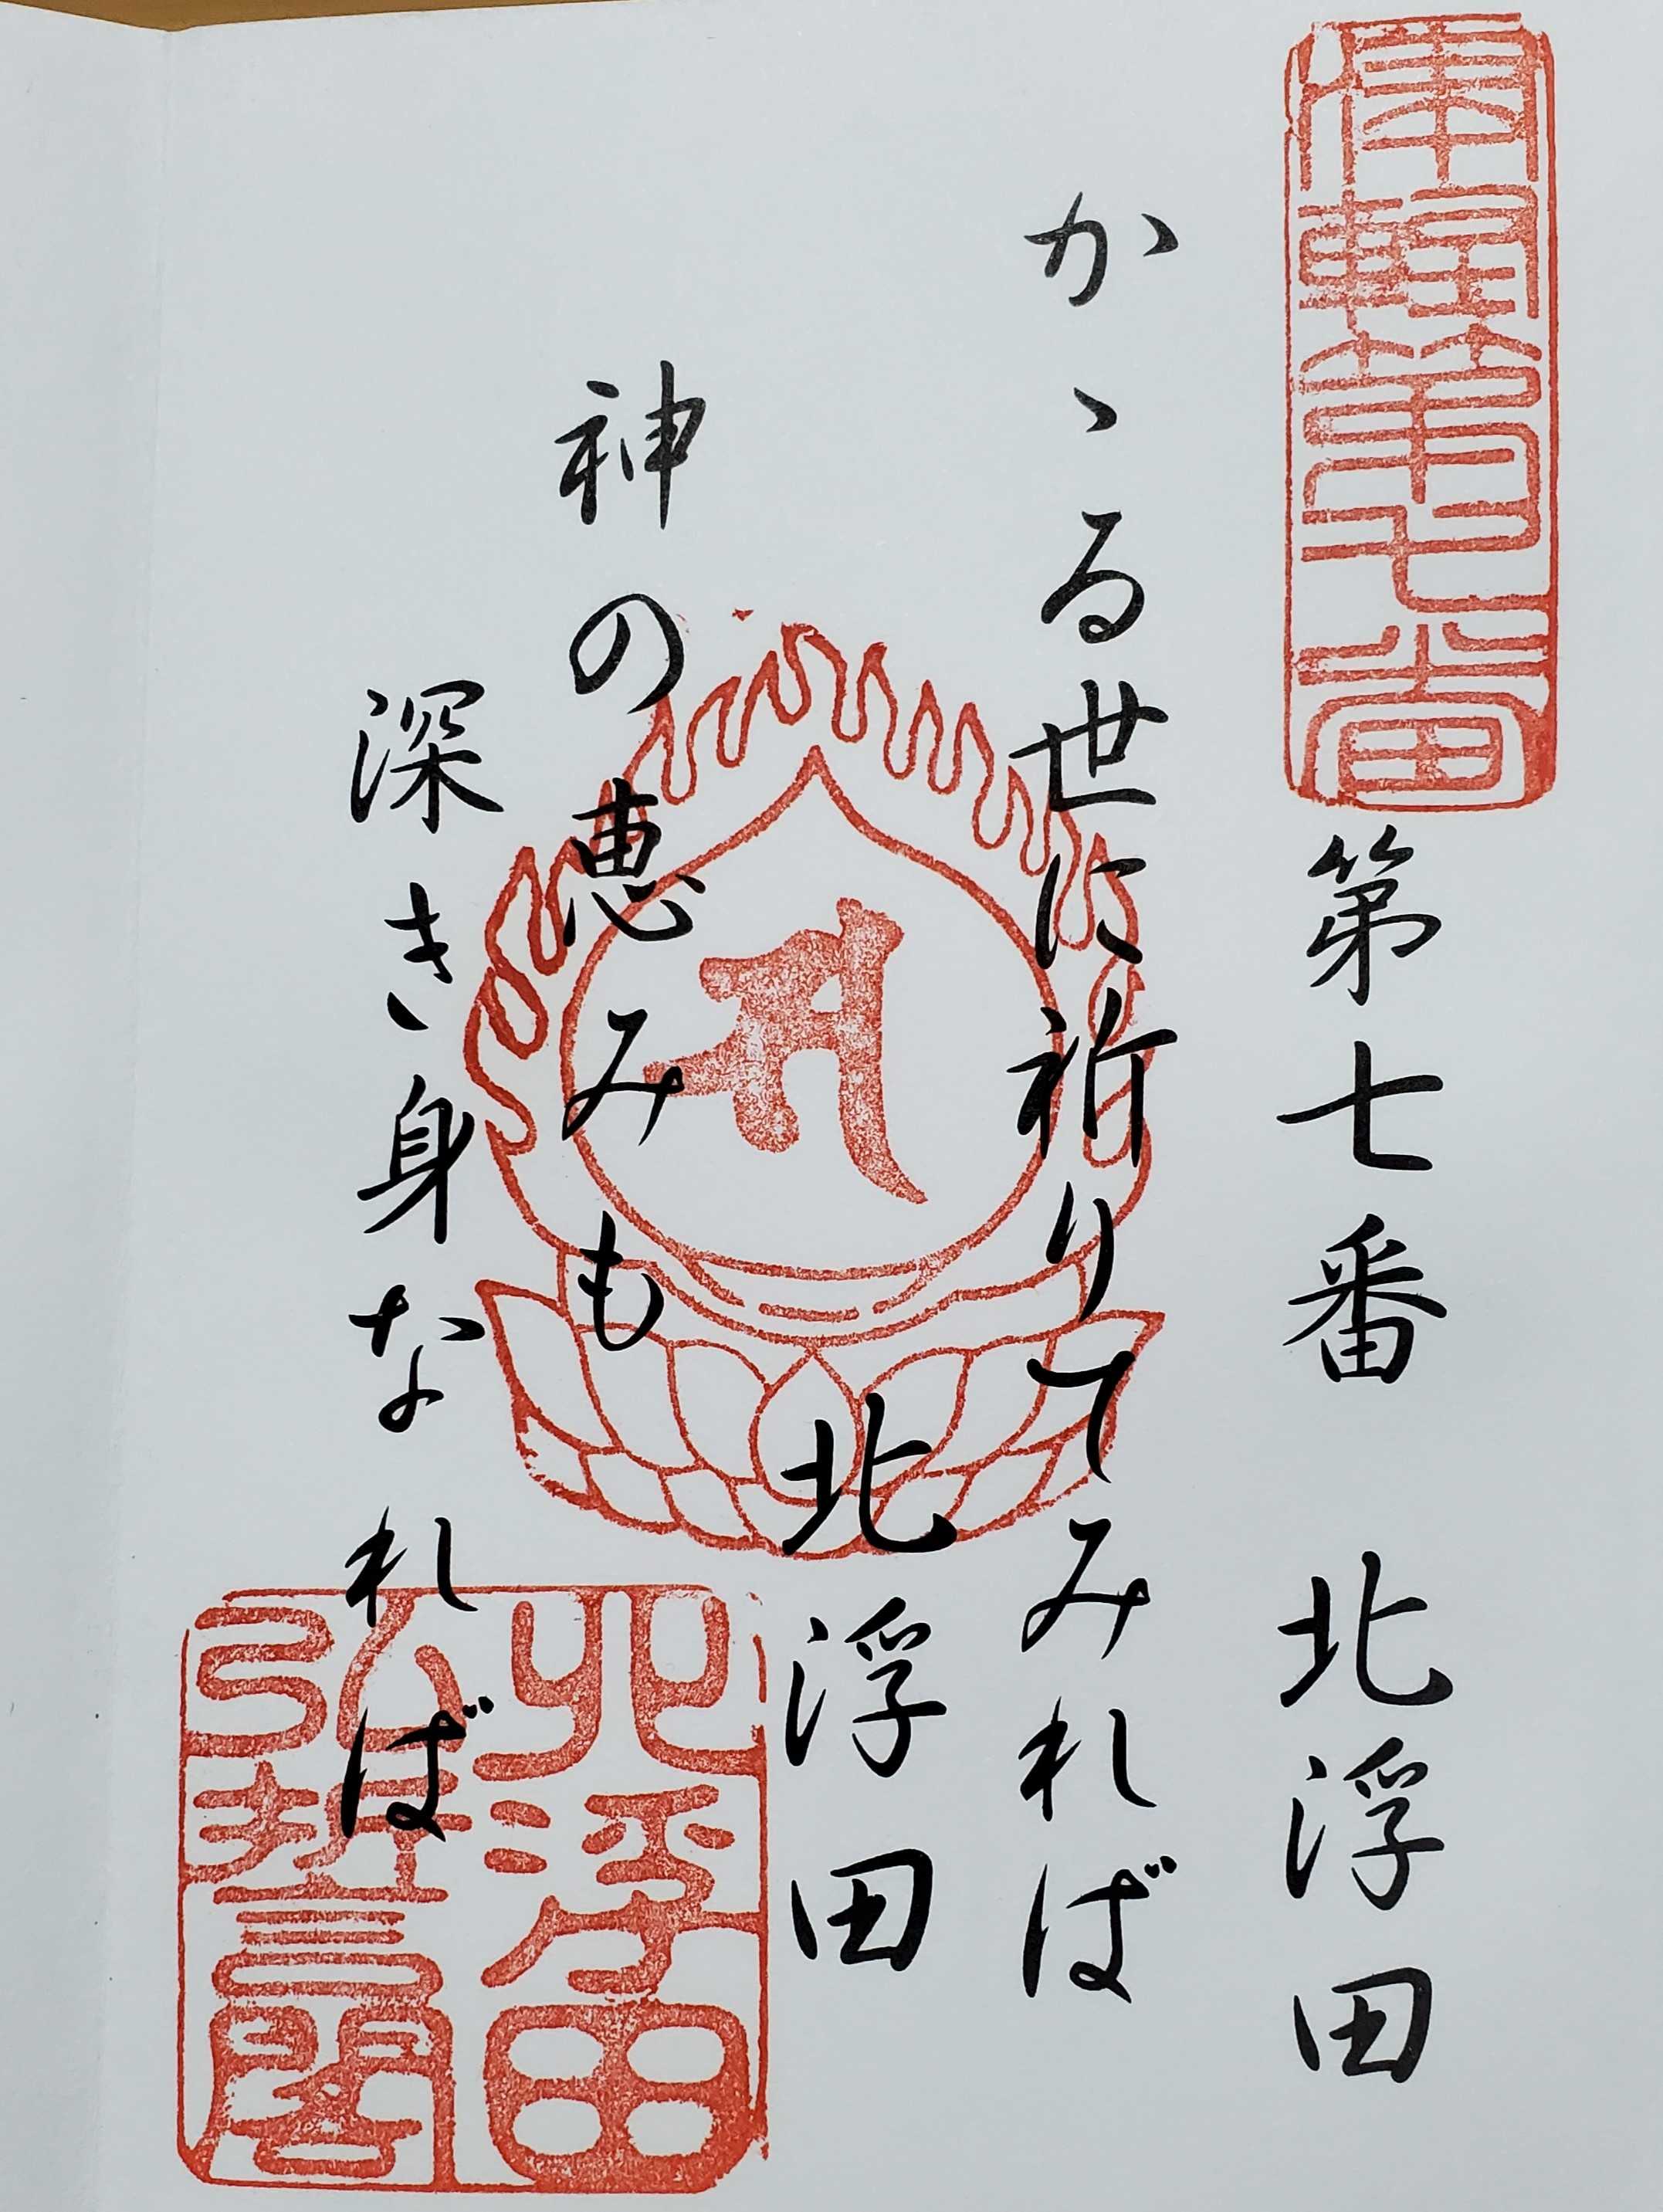 津軽第七番
第七番 北浮田
かゝる世に祈りてみれば
北浮田
神の恵みも
深き身なれば
北浮田
弘誓閣